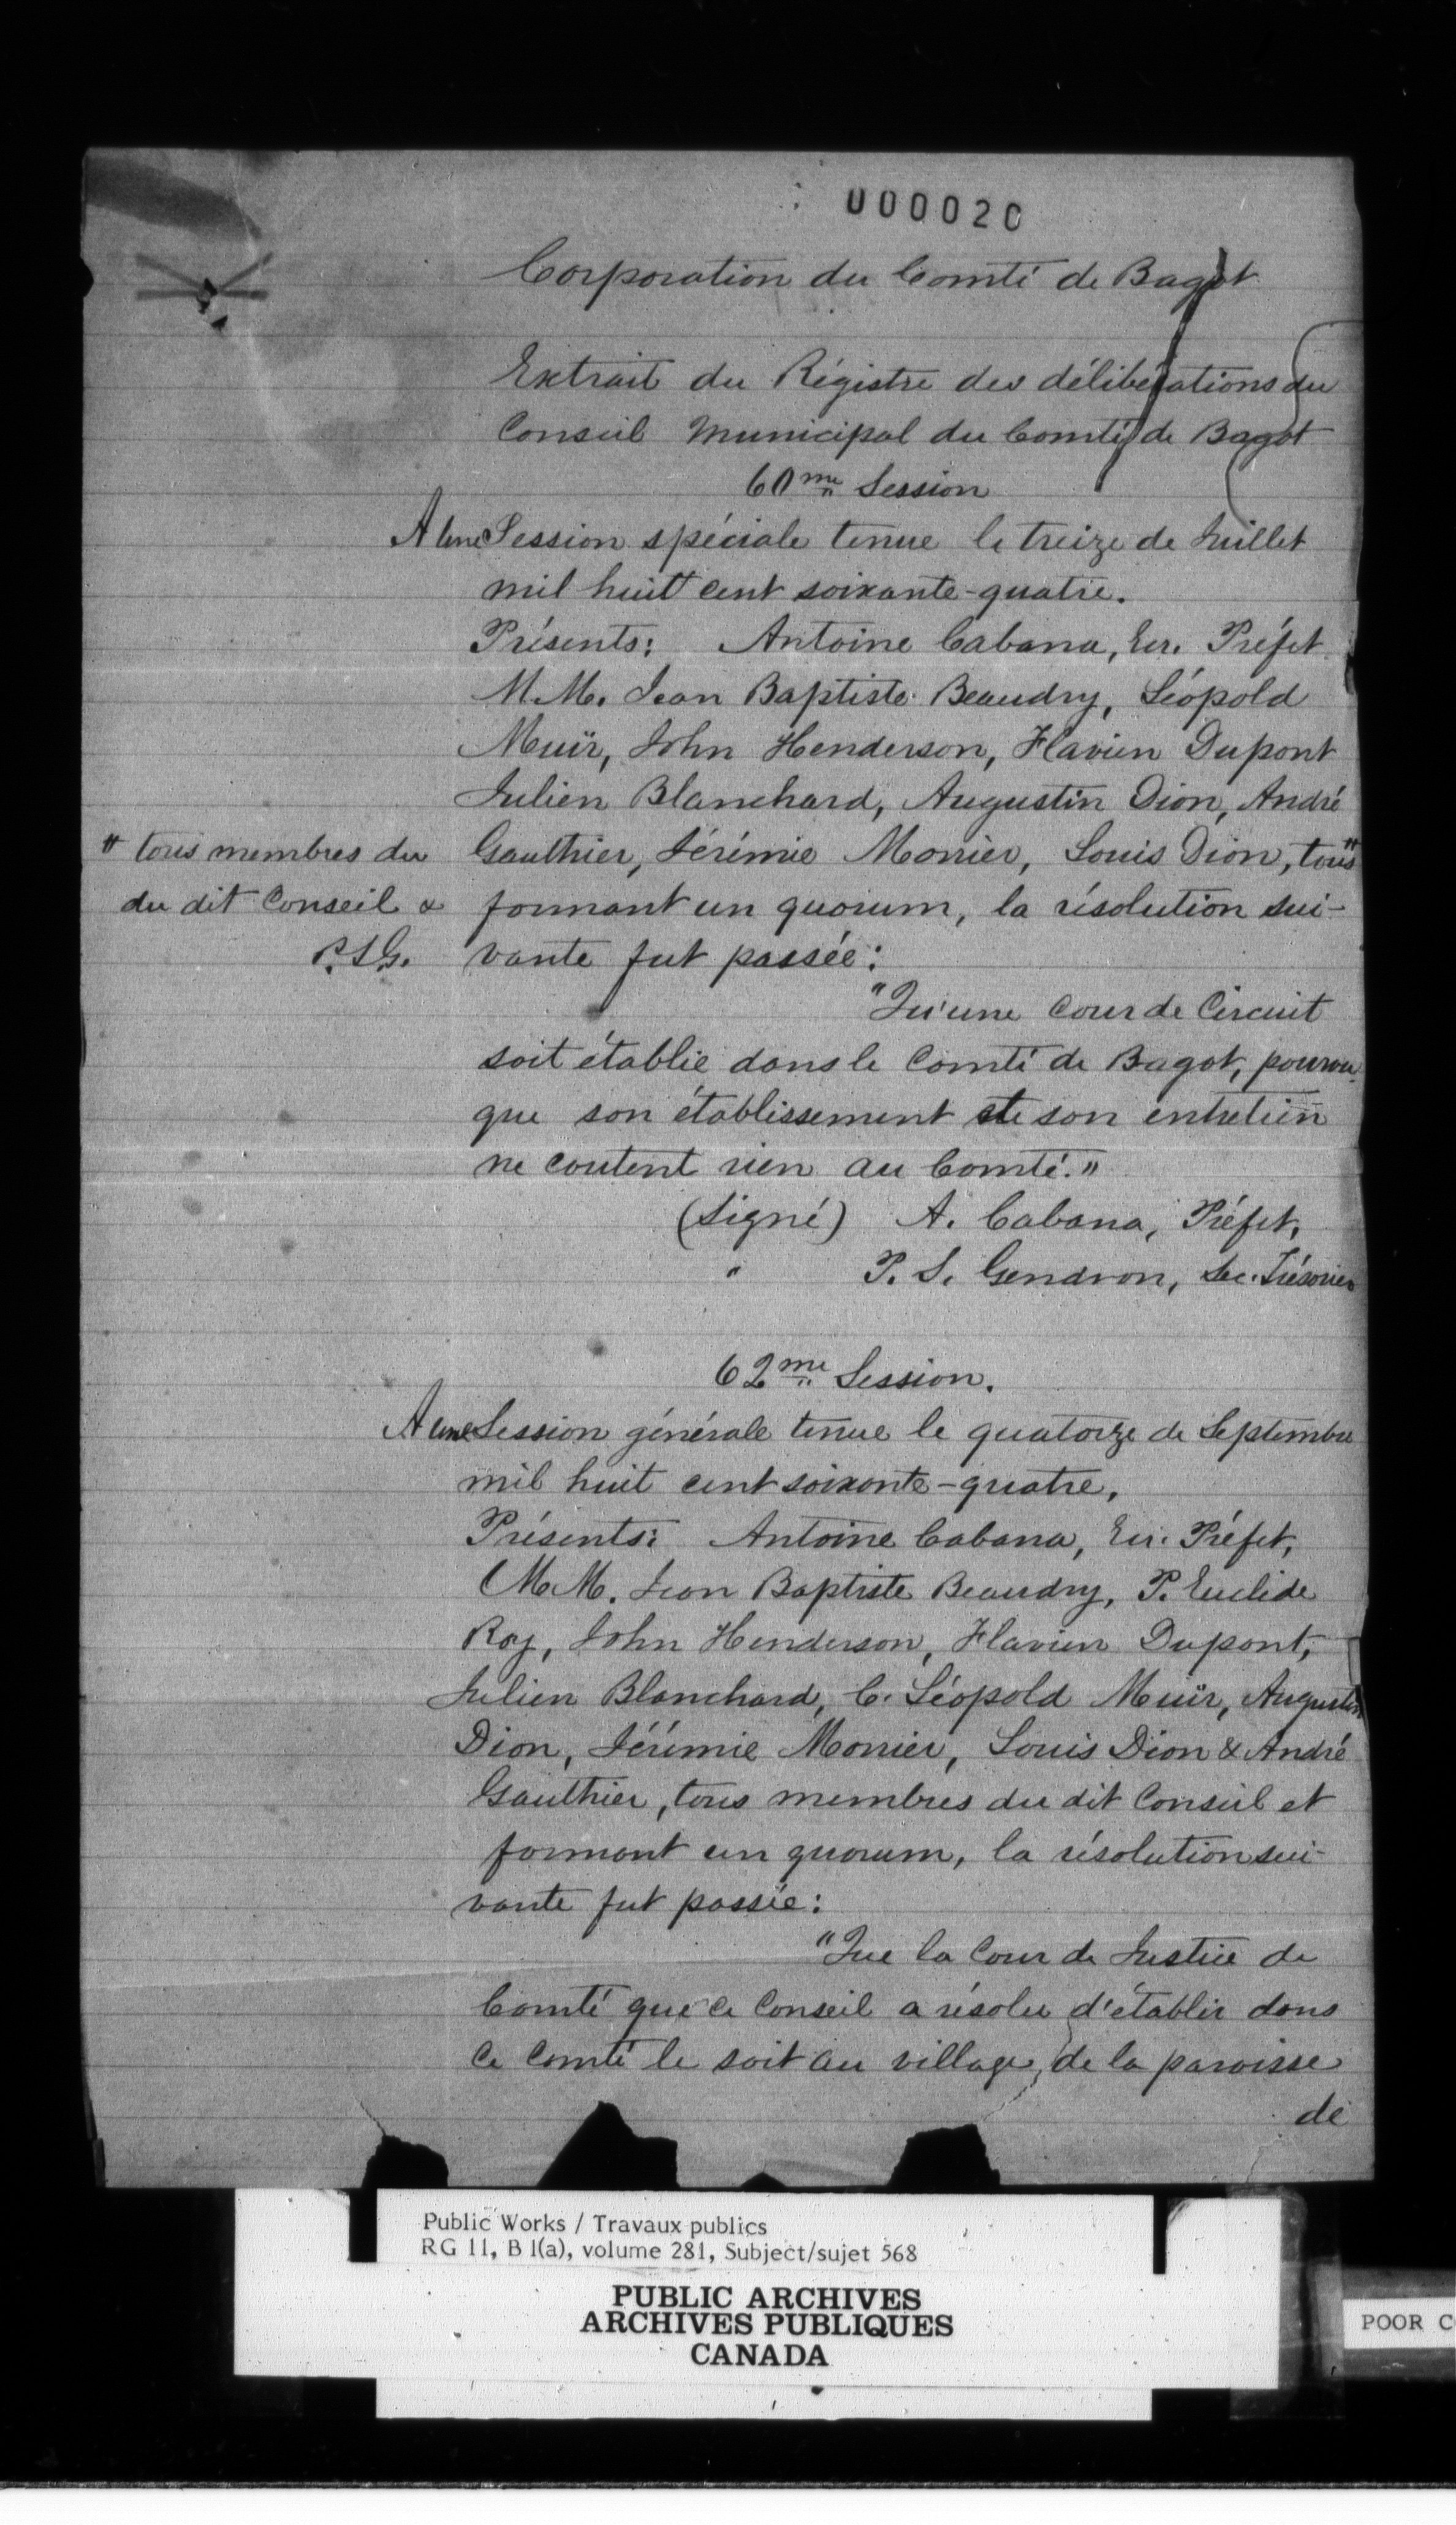 000020
Corporation du Comté de Bagot
Extrait du Régistre des délibérations du
Conseil Municipal du Comté de Bagot
60me Session
A une Session spéciale tenue le treize de Juillet
mil huit cent soixante-quatre.
Présents: Antoine Cabana, Ecr. Préfet
M.M. Jean Baptiste Beaudry, Léopold
Muir, John Henderson, Flavien Dupont
Julien Blanchard, Augustin Dion, André
Gauthier, Jérémie Monier, Louis Dion, tous "
" tous membres du
du dit Conseil &
P.S.G.
formant un quorum, la résolution sui-
vante fut passée:
"Qu'une Cour de Circuit
soit établie dans le Comté de Bagot, pourvu
que son établissement et son entretien
ne coutent rien au Comté."
(Signé) A. Cabana, Préfet,
" P. S. Gendron, Sec. Trésorier
62me Session.
A une Session générale tenue le quatorze de Septembre
mil huit cent soixante-quatre,
Présents: Antoine Cabana, Ecr. Préfet,
M.M. Jean Baptiste Beaudry, P. Euclide
Roy, John Henderson, Flavien Dupont,
Julien Blanchard, C. Léopold Muir, Augustin
Dion, Jérémie Monier, Louis Dion & André
Gauthier, tous membres du dit Conseil et
formant un quorum, la résolution sui-
vante fut passée:
"Que la Cour de Justice de
Comté que ce Conseil a résolu d'établir dans
ce Comté le soit au village de la paroisse
de
Public Works / Travaux publics
RG 11, B 1(a), volume 281, Subject/sujet 568
PUBLIC ARCHIVES
ARCHIVES PUBLIQUES
CANADA
POOR C